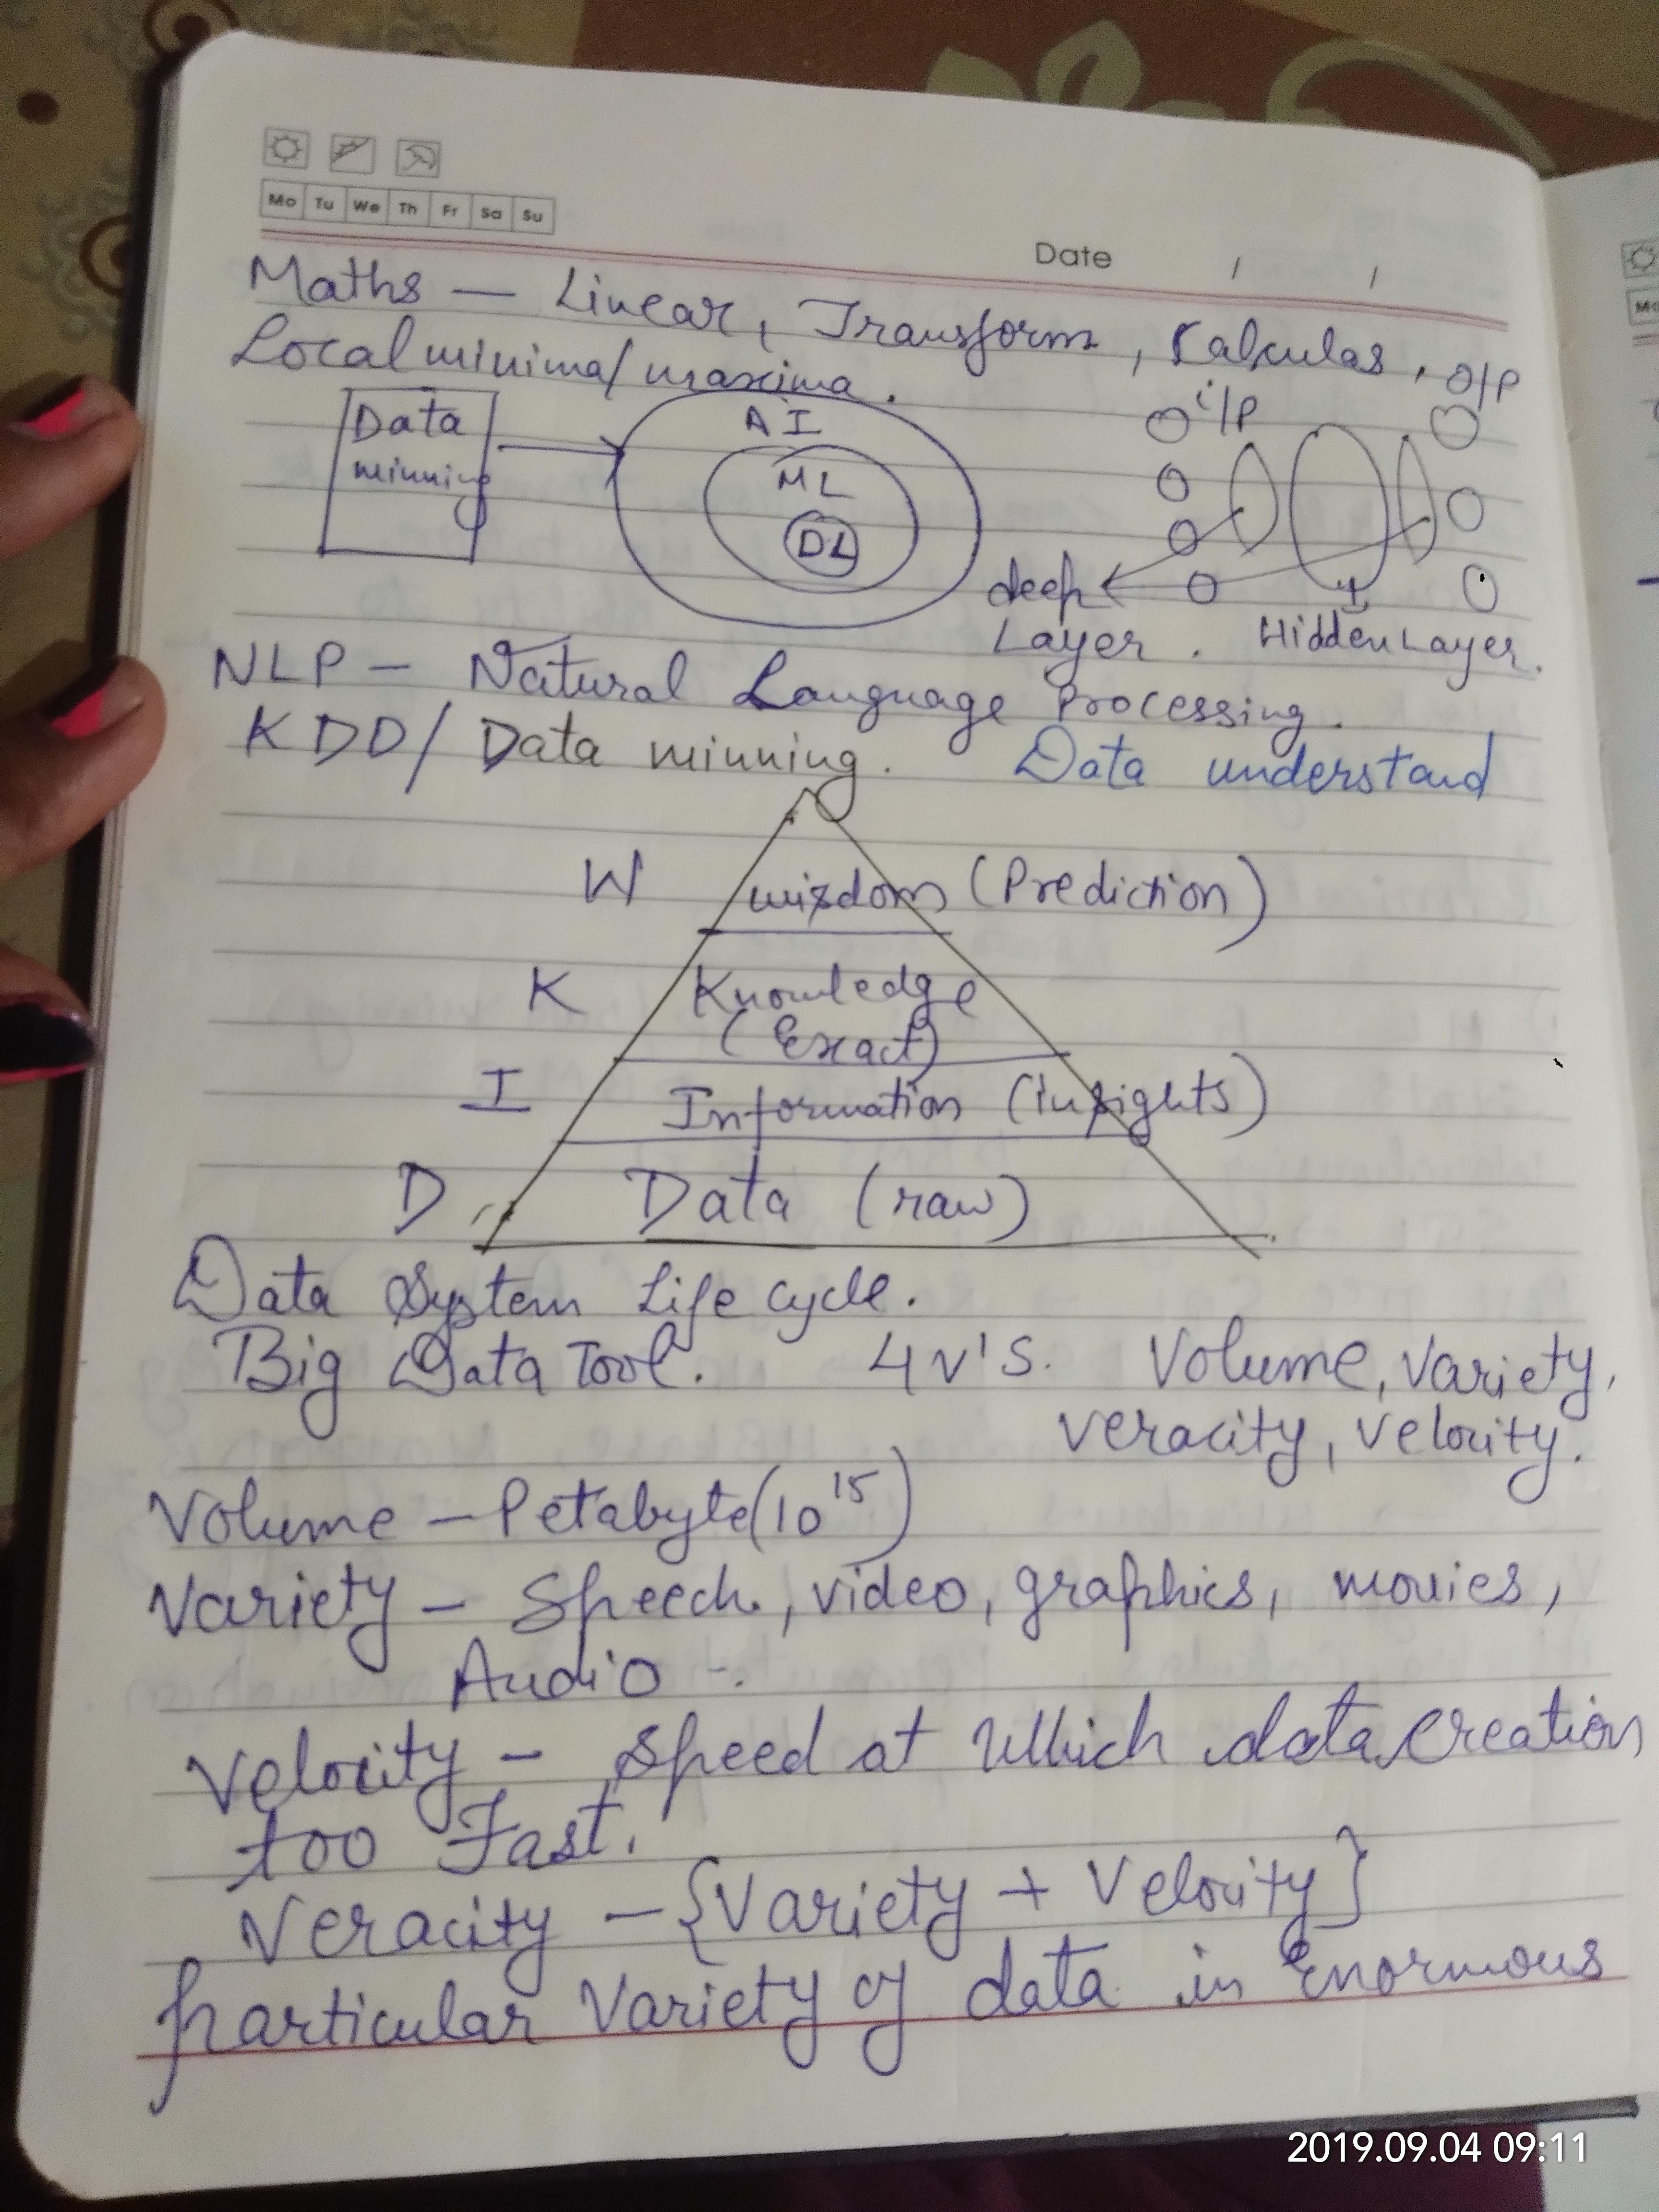 Mo Tu We Th Fr Sa Su
Date / /
Maths — Linear, Transform, Calculas,
Local minima/maxima.
Data
minning
AI
ML
DL
i/P
O/P
deep
Layer.
Hidden Layer.
NLP — Natural Language Processing.
KDD/ Data minning. Data understand
W wisdom (Prediction)
K Knowledge
(Exact)
I Information (insights)
D Data (raw)
Data System Life cycle.
Big Data Tool. 4 V'S. Volume, Variety,
Veracity, Velocity.
Volume — Petabyte (10^15)
Variety — Speech, video, graphics, movies,
Audio -.
Velocity — Speed at which data creation
too Fast.
Veracity — {Variety + Velocity}
particular Variety of data in Enormous
2019.09.04 09:11